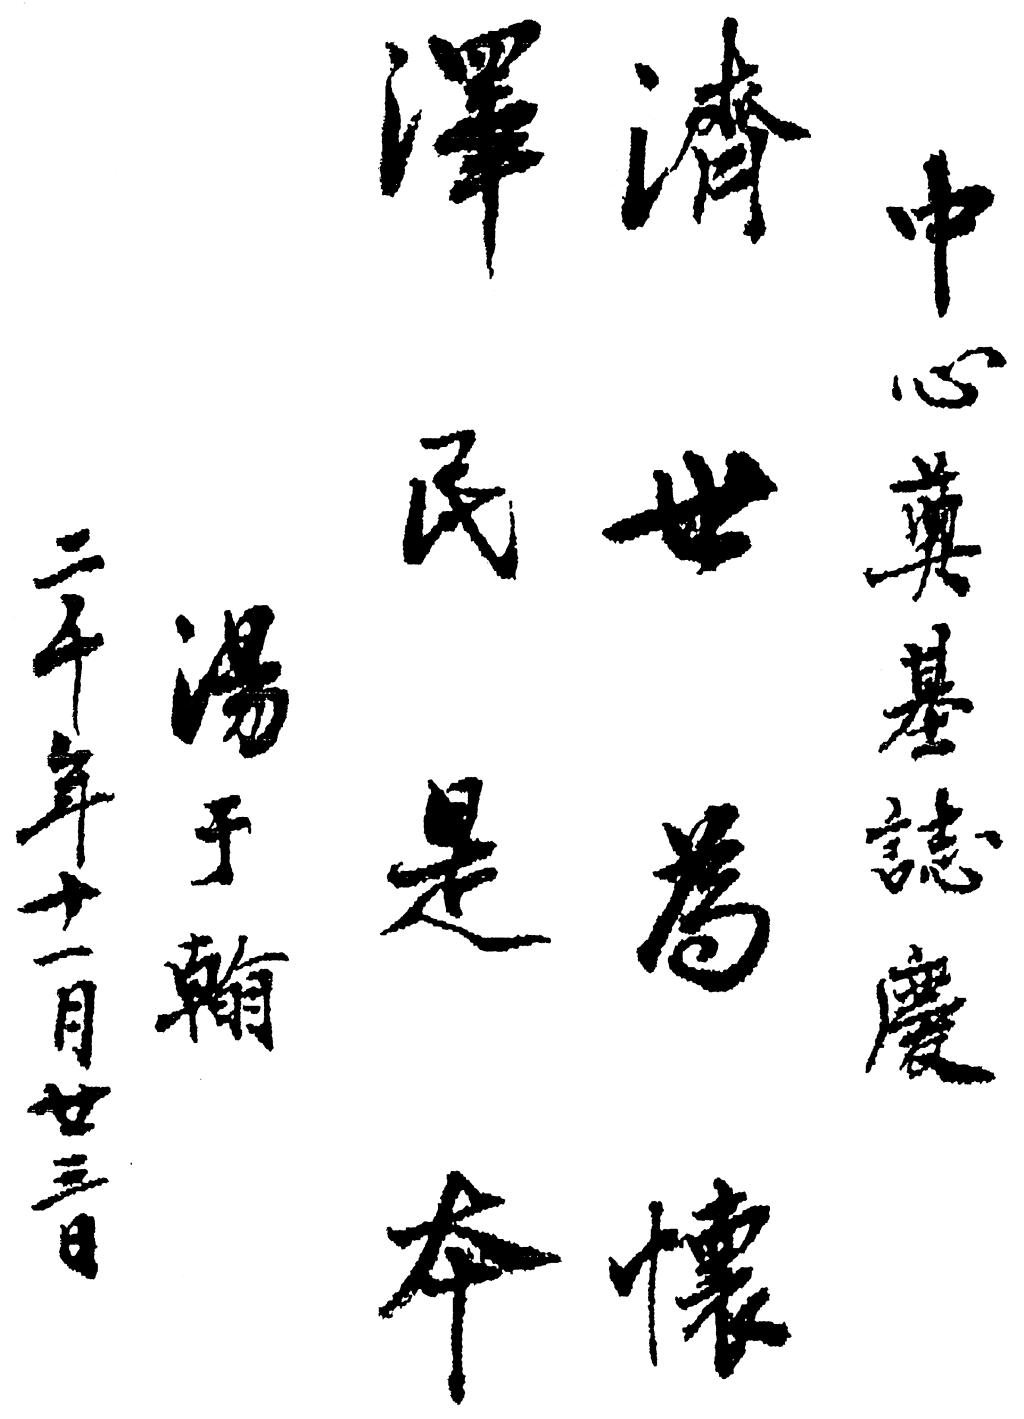 中心奠基誌慶
濟世為懷
澤民是本
湯于翰
二千年十一月廿三日